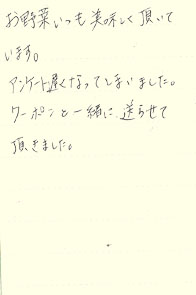 お野菜いつも美味しく頂いて
います。
アンケート遅くなってしまいました。
クーポンと一緒に送らせて
頂きました。